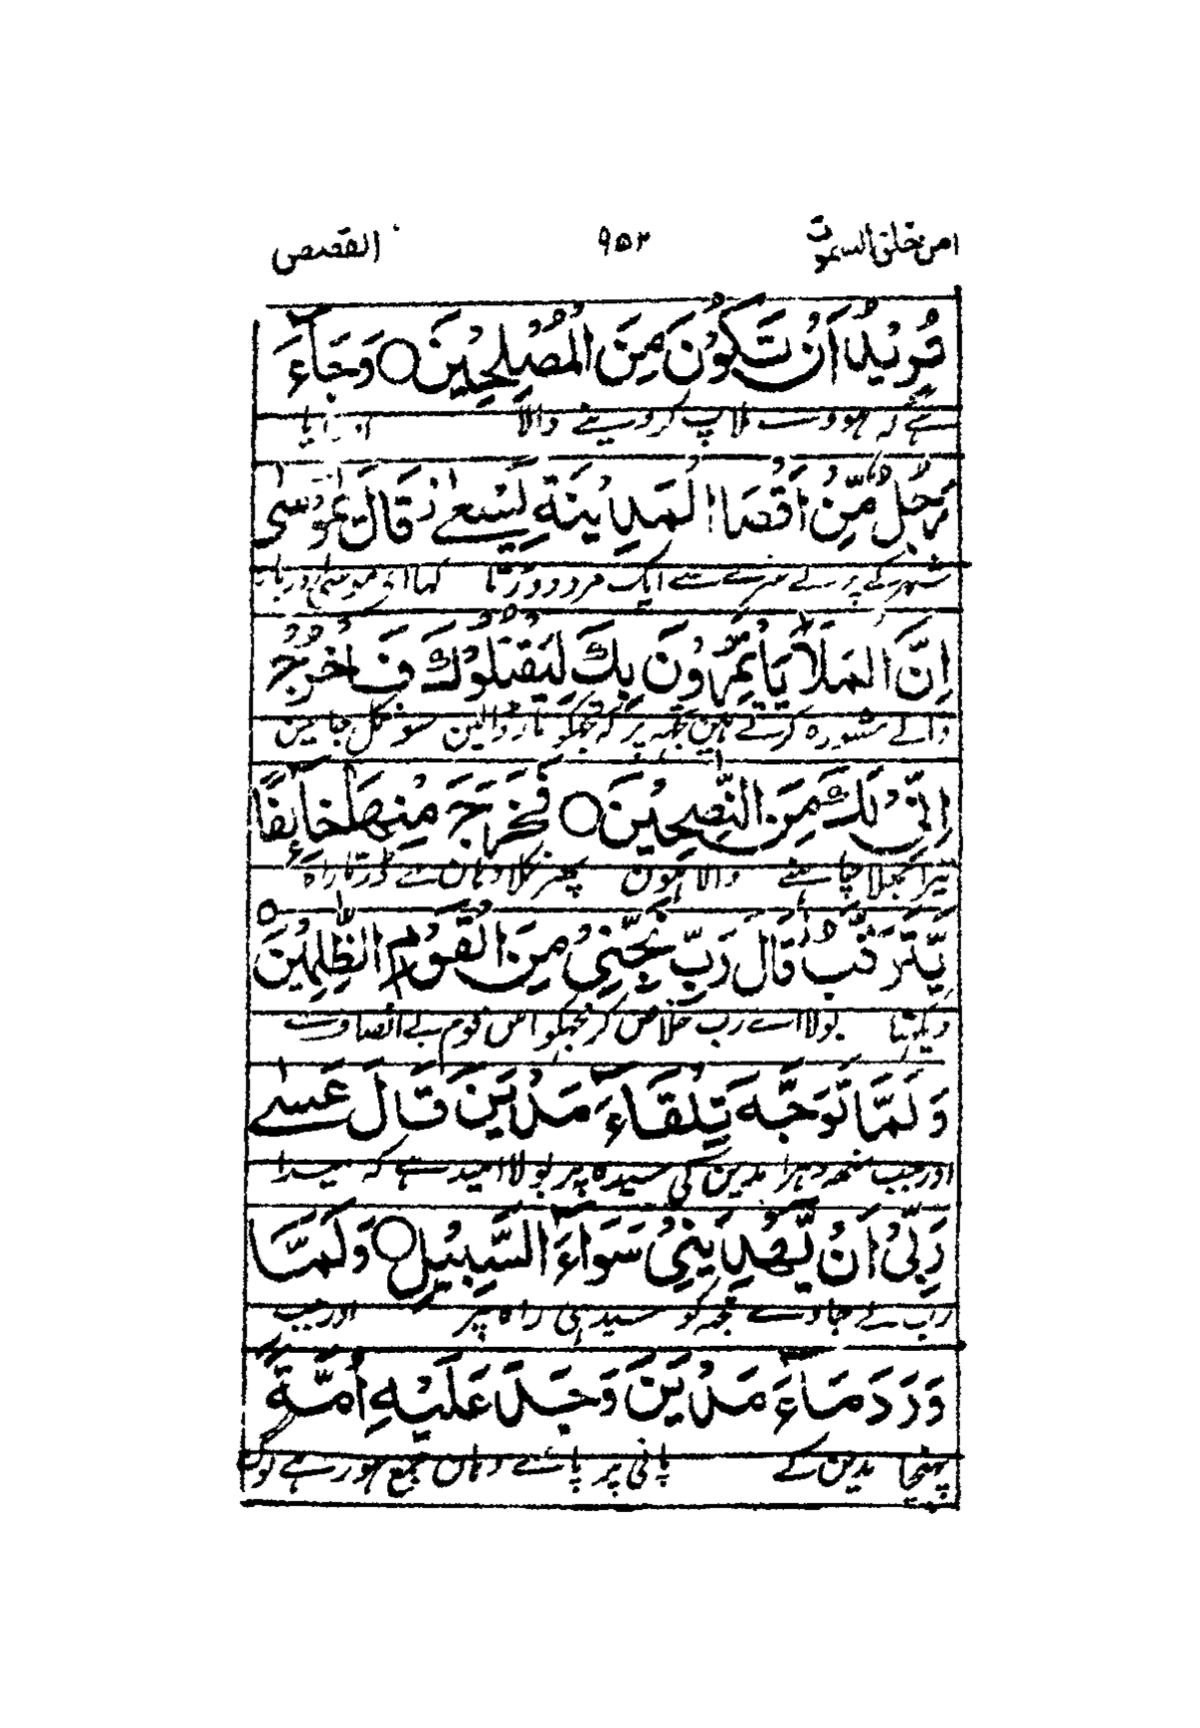 امن خلق السموت ۹۵۲ القصص
تُرِيْدُ اَنْ تَكُوْنَ مِنَ الْمُصْلِحِيْنَ ○ وَجَآءَ
ہے کہ ہووے ملاپ کر دینے والا اور آیا
رَجُلٌ مِّنْ اَقْصَا الْمَدِيْنَةِ يَسْعٰى ز قَالَ يٰمُوْسٰى
شہر کے پرلے سرے سے ایک مرد دوڑتا کہا ای موسیٰ دربار
اِنَّ الْمَلَاَ يَاْتَمِرُوْنَ بِكَ لِيَقْتُلُوْكَ فَاخْرُجْ
والے مشورہ کرتے ہین تجہہ پر کہ تجھکو مار ڈالین سو نکل جا مین
اِنِّيْ لَكَ مِنَ النّٰصِحِيْنَ ○ فَخَرَجَ مِنْهَا خَآئِفًا
تیرا بھلا چاہنے والا ہون پھر نکلا وہان سے ڈرتا راہ
يَّتَرَقَّبُ ز قَالَ رَبِّ نَجِّنِيْ مِنَ الْقَوْمِ الظّٰلِمِيْنَ ○
دیکہتا بولا اے رب خلاص کر مجھکو اس قوم بے انصاف سے
وَلَمَّا تَوَجَّهَ تِلْقَآءَ مَدْيَنَ قَالَ عَسٰى
اور جب منھہ دہرا مدین کی سیدہ پر بولا امید ہے کہ میرا
رَبِّيْ اَنْ يَّهْدِيَنِيْ سَوَآءَ السَّبِيْلِ ○ وَلَمَّا
رب لے جاوے مجہہ کو سیدہی راہ پر اور جب
وَرَدَ مَآءَ مَدْيَنَ وَجَدَ عَلَيْهِ اُمَّةً
پہنچا مدین کے پانی پر پائے وہان جمع ہو رہے لوگ